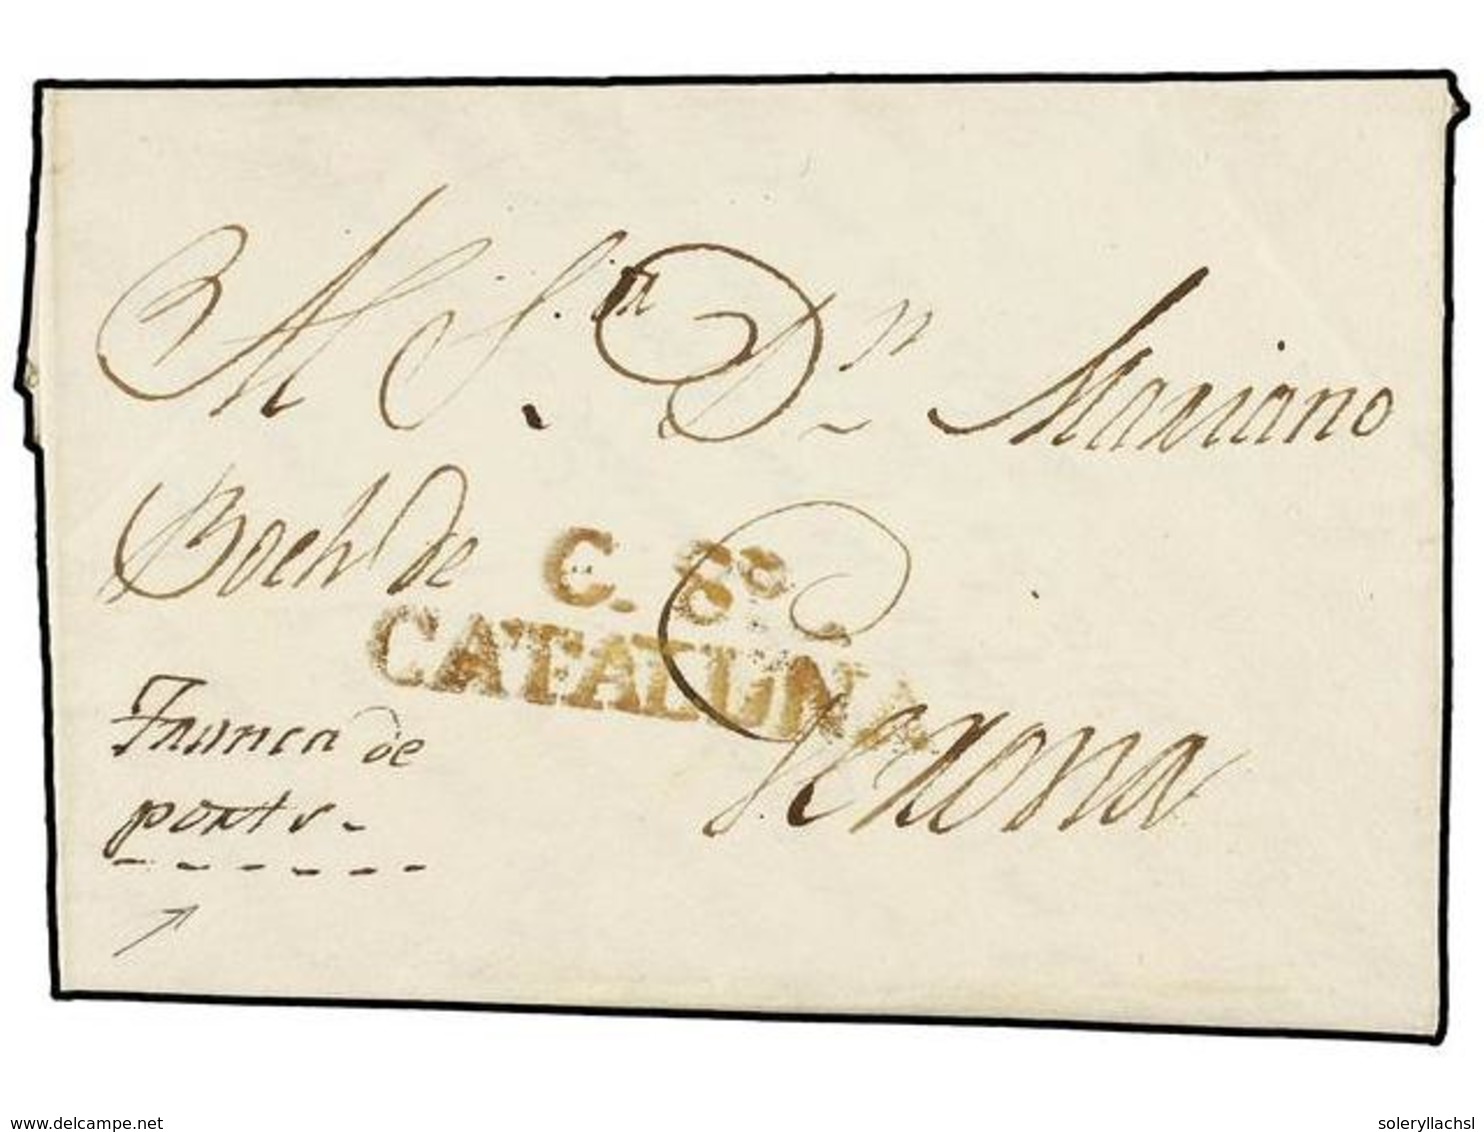 Al S.or Dn Mariano
Boch de
C. 8º
CATALUÑA
Gerona
Franca de
porte-
www.delcampe.net
soleryllachsl